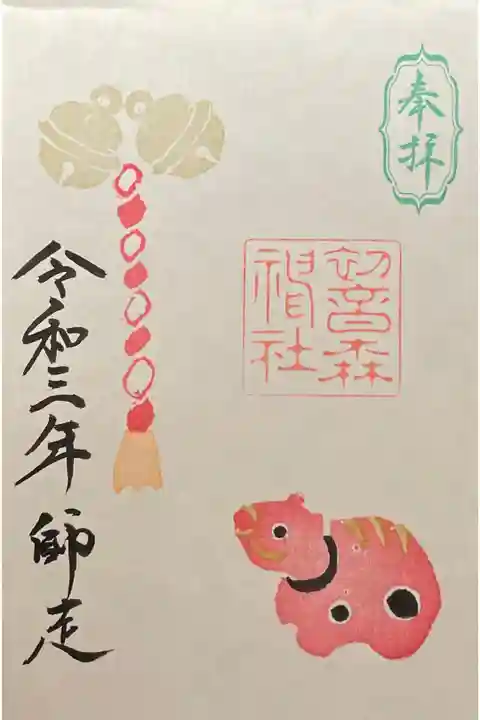 奉拝
初音森
神社
令和三年師走